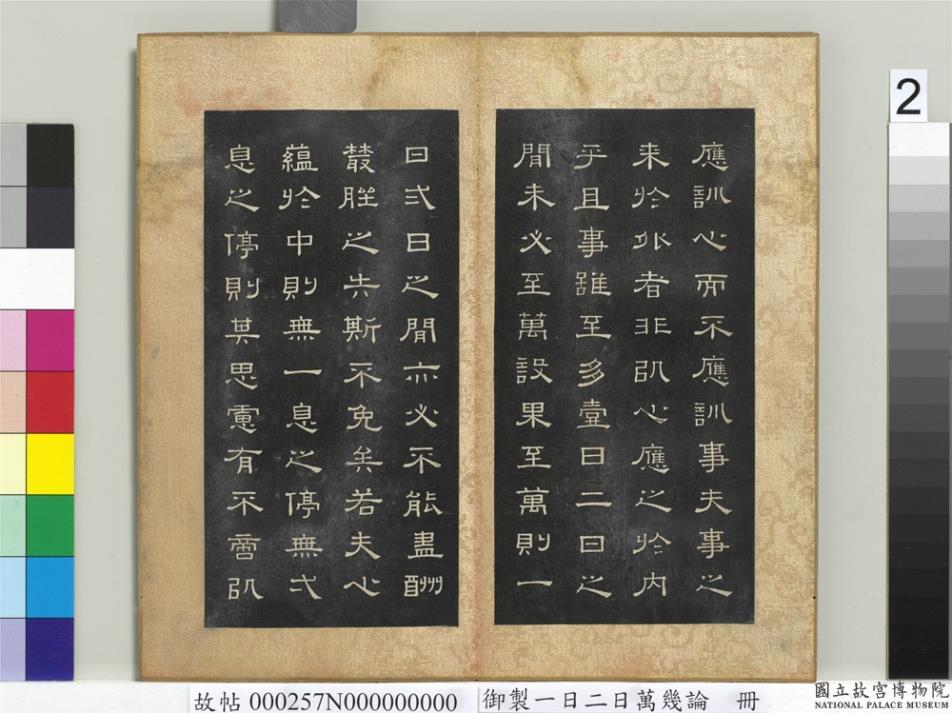 應訓心而不應訓事夫事之
来於外者非㕥心應之於内
乎且事雖至多壹日二日之
閒未必至萬設果至萬則一
日弍日之閒亦必不能盡酬
叢脞之失斯不免矣若夫心
蘊於中則無一息之停無弌
息之停則其思慮有不啻㕥
2
故帖 000257N000000000 御製一日二日萬幾論 冊
國立故宮博物院
NATIONAL PALACE MUSEUM